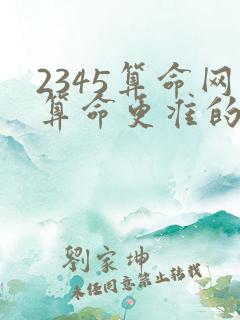 2345算命网
算命更准的
劉家坤
未经同意禁止转载